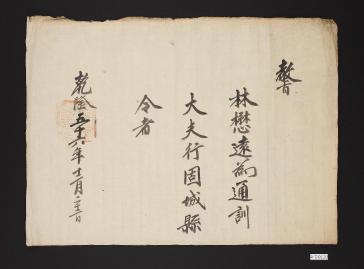 敎旨
林懋遠爲通訓
大夫行固城縣
令者
乾隆五十六年十二月二十二日